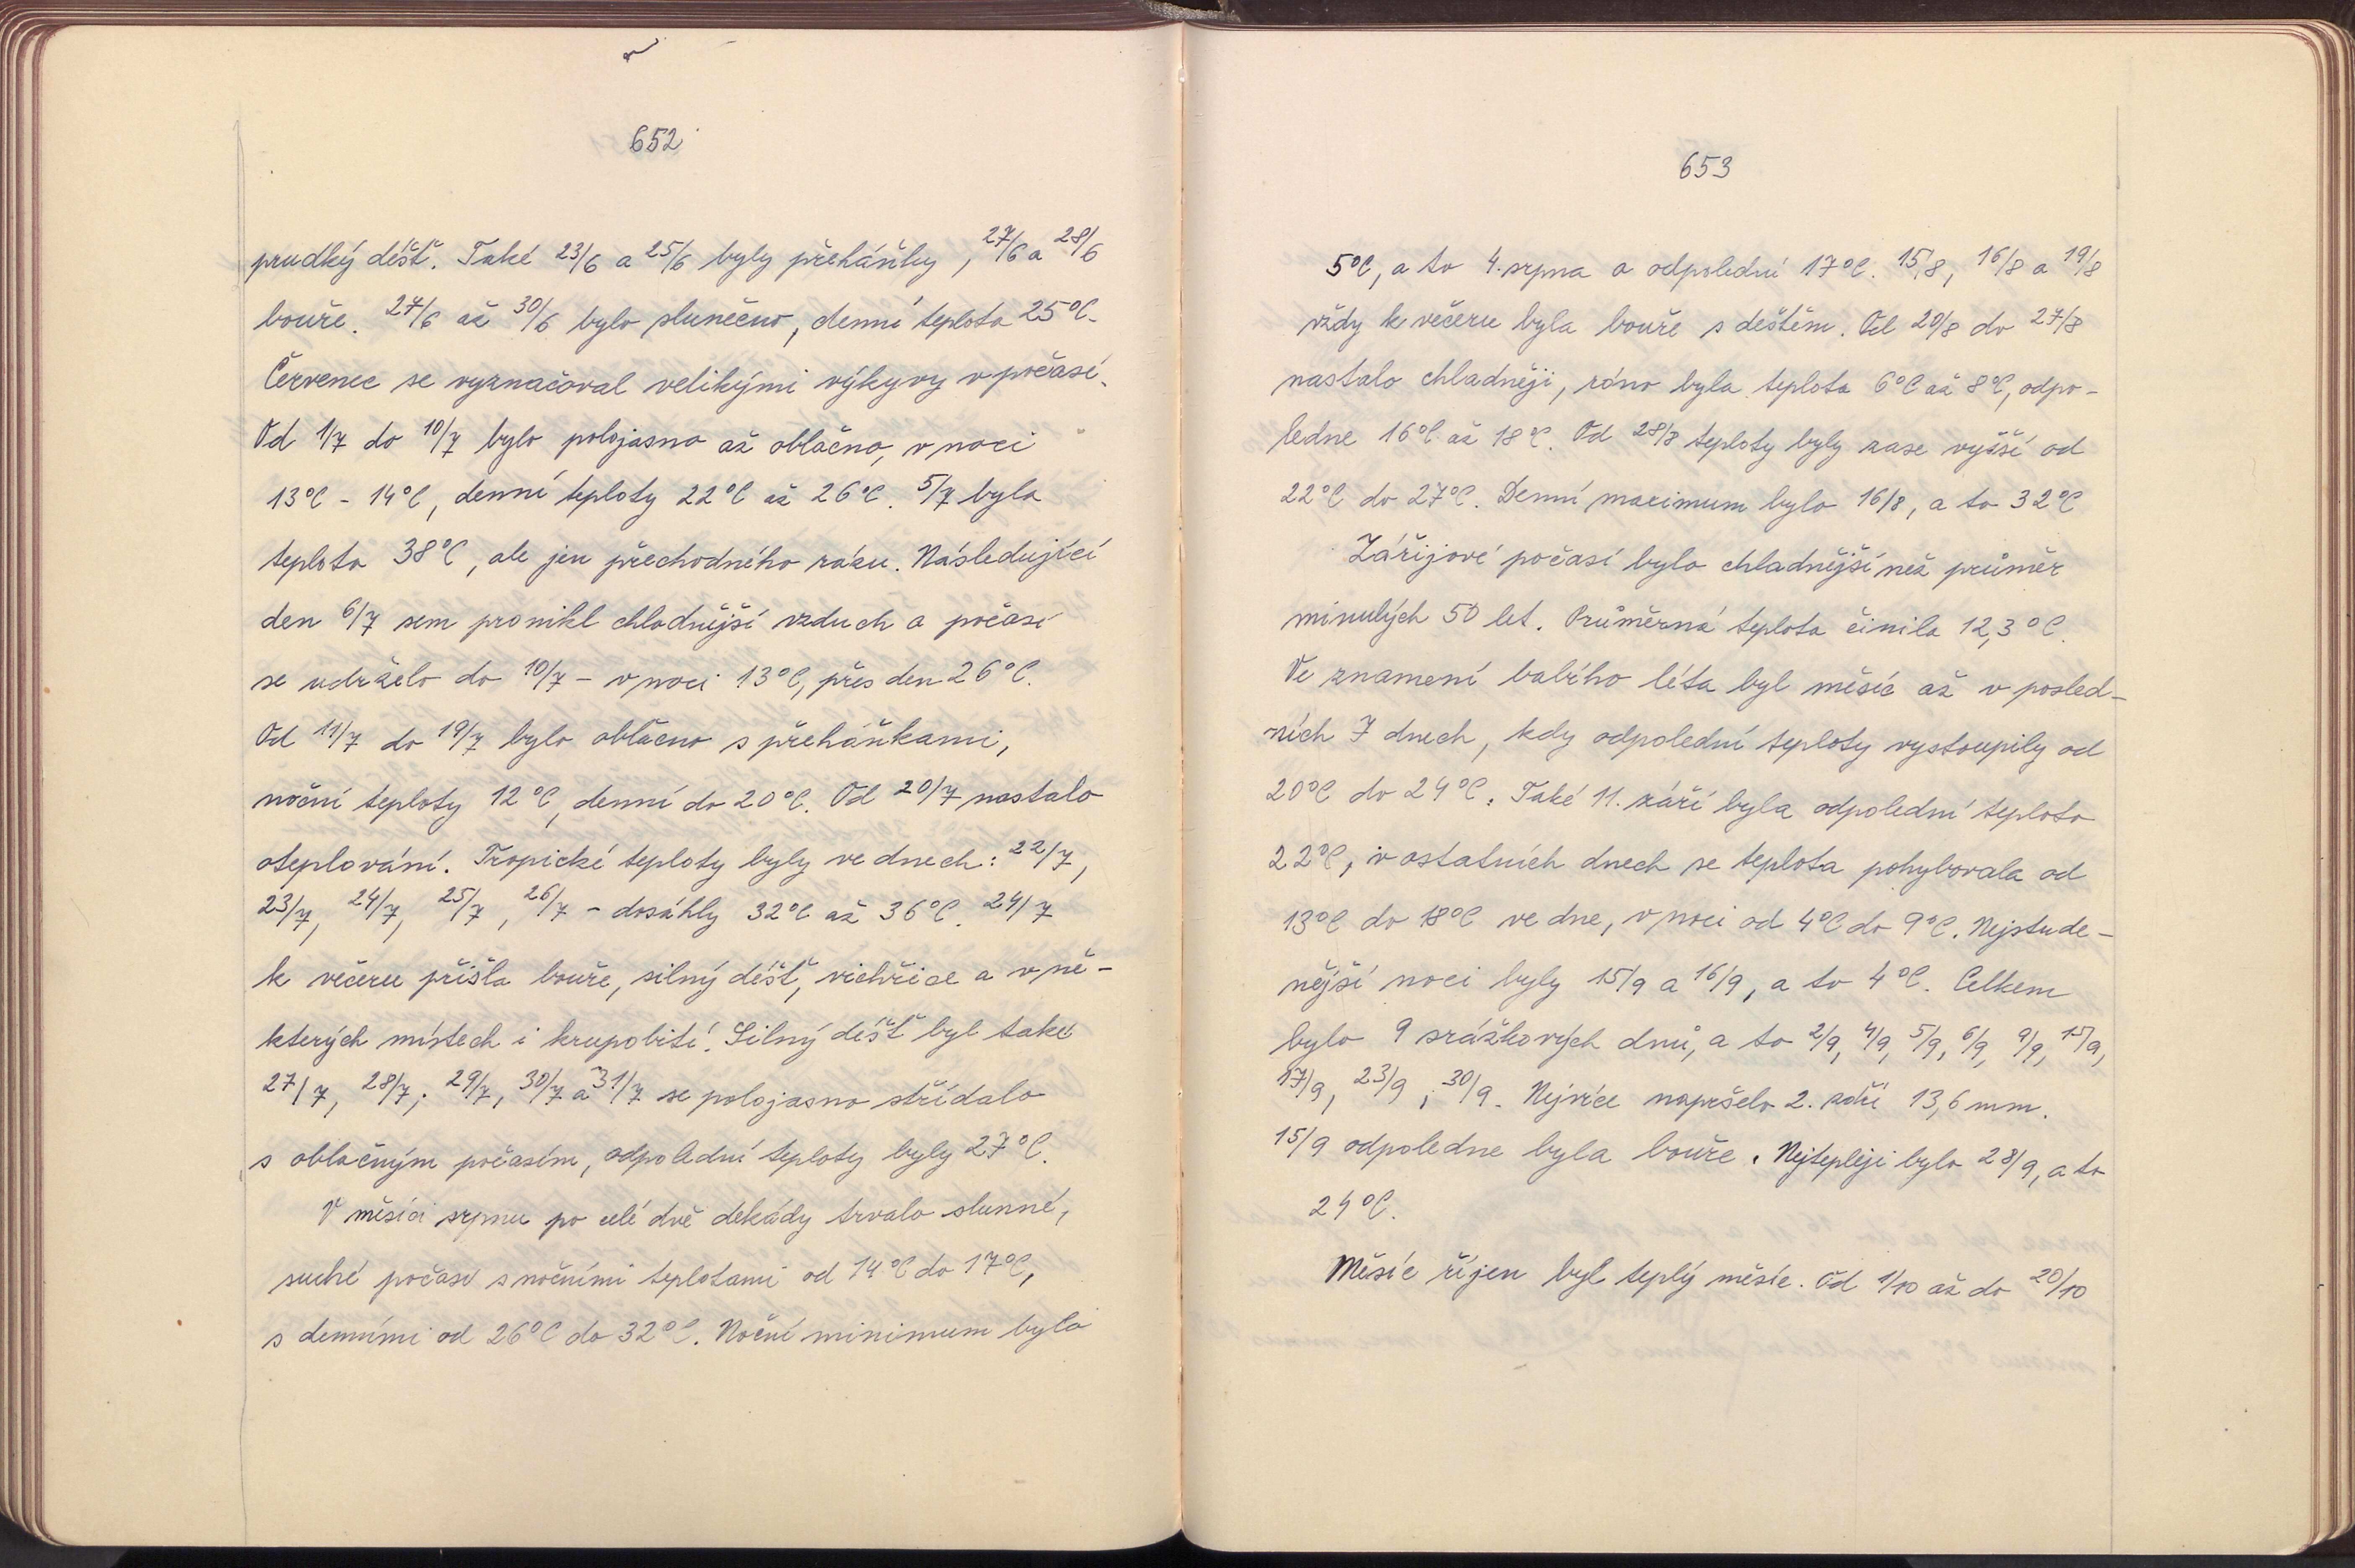 652
prudký déšť. Také 23/6 a 25/6 byly přeháňky, 27/6 a 28/6
bouře. 27/6 až 30/6 bylo slunečno, denní teplota 25°C.
Červenec se vyznačoval velikými výkyvy v počasí.
Od 1/7 do 10/7 bylo polojasno až oblačno, v noci
13°C - 14°C, denní teploty 22°C až 26°C. 5/7 byla
teplota 38°C, ale jen přechodného rázu. Následující
den 6/7 sem pronikl chladnější vzduch a počasí
se udrželo do 10/7 - v noci 13°C, přes den 26°C.
Od 11/7 do 19/7 bylo oblačno s přeháňkami,
noční teploty 12°C, denní do 20°C. Od 20/7 nastalo
oteplování. Tropické teploty byly ve dnech: 22/7,
23/7, 24/7, 25/7, 26/7 - dosáhly 32°C až 36°C. 24/7
k večeru přišla bouře, silný déšť, vichřice a v ně-
kterých místech i krupobití. Silný déšť byl také
27/7, 28/7; 29/7, 30/7 a 31/7 se polojasno střídalo
s oblačným počasím, odpolední teploty byly 27°C.
V měsíci srpnu po celé dvě dekády trvalo slunné,
suché počasí s nočními teplotami od 14°C do 17°C,
s denními od 26°C do 32°C. Noční minimum bylo
653
5°C, a to 4. srpna a odpolední 17°C. 15/8, 16/8 a 19/8
vždy k večeru byla bouře s deštěm. Od 20/8 do 27/8
nastalo chladněji, ráno byla teplota 6°C až 8°C, odpo-
ledne 16°C až 18°C. Od 28/8 teploty byly zase vyšší od
22°C do 27°C. Denní maximum bylo 16/8, a to 32°C
Zářijové počasí bylo chladnější než průměr
minulých 50 let. Průměrná teplota činila 12,3°C.
Ve znamení babího léta byl měsíc až v posled-
ních 7 dnech, kdy odpolední teploty vystoupily od
20°C do 24°C. Také 11. září byla odpolední teplota
22°C, v ostatních dnech se teplota pohybovala od
13°C do 18°C ve dne, v noci od 4°C do 9°C. Nejstude-
nější noci byly 15/9 a 16/9, a to 4°C. Celkem
bylo 9 srážkových dnů, a to 2/9, 4/9, 5/9, 6/9, 9/9, 15/9,
17/9, 23/9, 30/9. Nejvíce napršelo 2. září 13,6 mm.
15/9 odpoledne byla bouře. Nejtepleji bylo 28/9, a to
24°C.
Měsíc říjen byl teplý měsíc. Od 1/10 až do 20/10